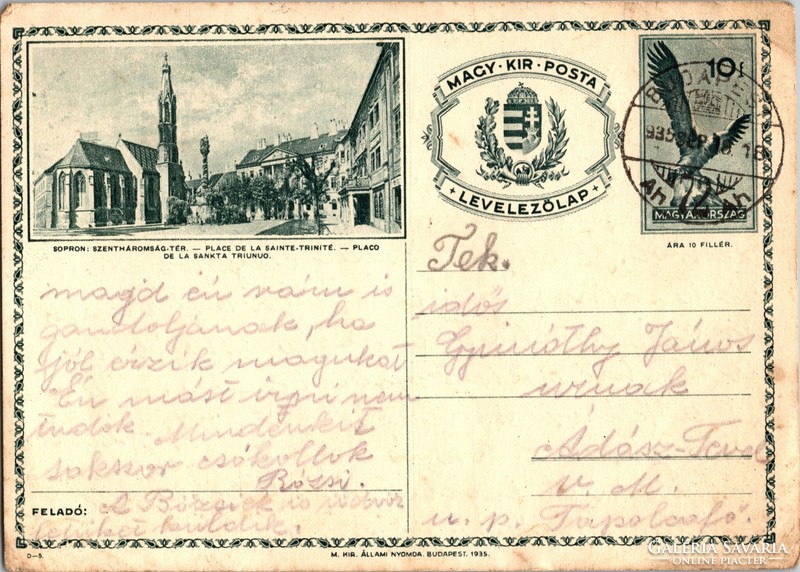 MAGY · KIR · POSTA
LEVELEZŐLAP
10 f
MAGYARORSZÁG
ÁRA 10 FILLÉR.
BUDAPEST
72
SOPRON: SZENTHÁROMSÁG-TÉR. — PLACE DE LA SAINTE-TRINITÉ. — PLACO
DE LA SANKTA TRIUNUO.
magd én rám is
gondoljanak, ha
jól érzik magukat
Én mást írni nem
tudok Mindenkit
sokszor csókollok
Rózsi.
FELADÓ:
A Bözsiék is üdvöz
küldik.
Tek.
idős
János
urnak
Adász-Tevel
v. M.
u. p. Tapolcafő.
D—5.
M. KIR. ÁLLAMI NYOMDA. BUDAPEST. 1935.
GALERIA SAVARIA
ONLINE PIACTÉR